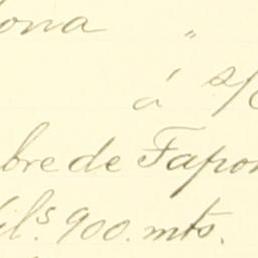 ona "
á s/
bre de Fapon
ils. 900. mts.